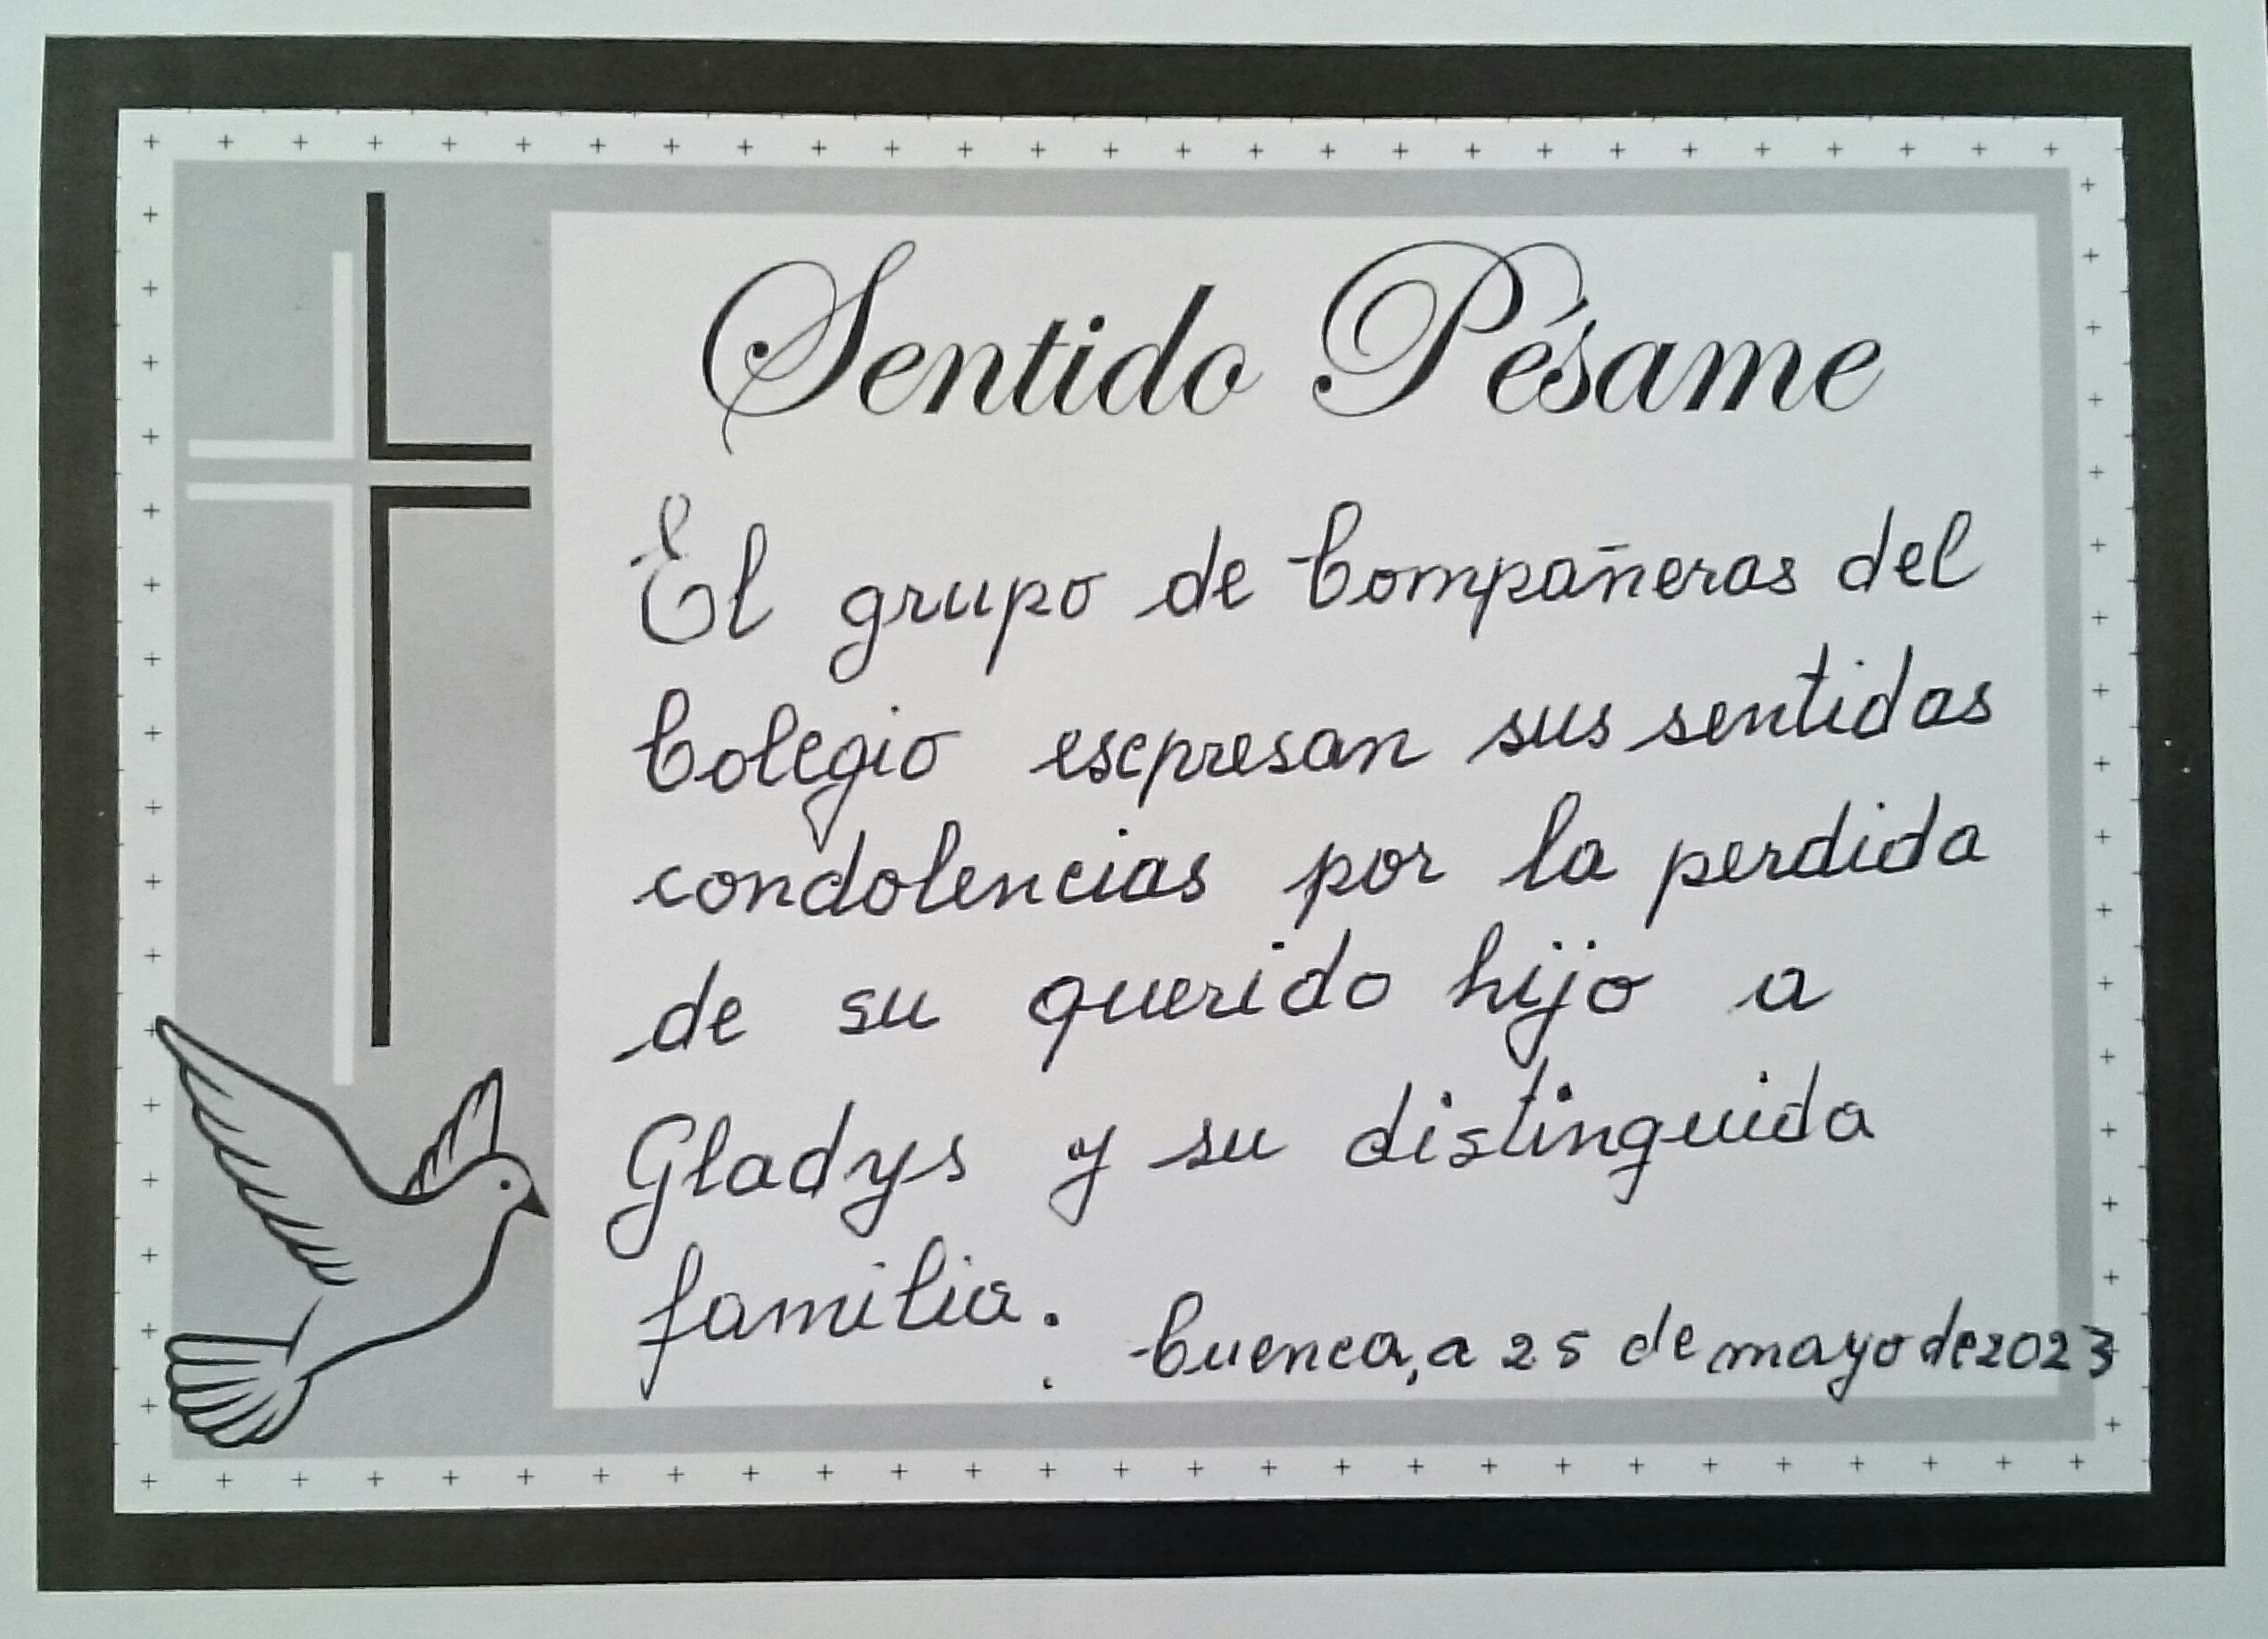 Sentido Pésame
El grupo de Compañeras del
Colegio expresan sus sentidas
condolencias por la perdida
de su querido hijo a
Gladys y su distinguida
familia.
Cuenca, a 25 de mayo de 2023